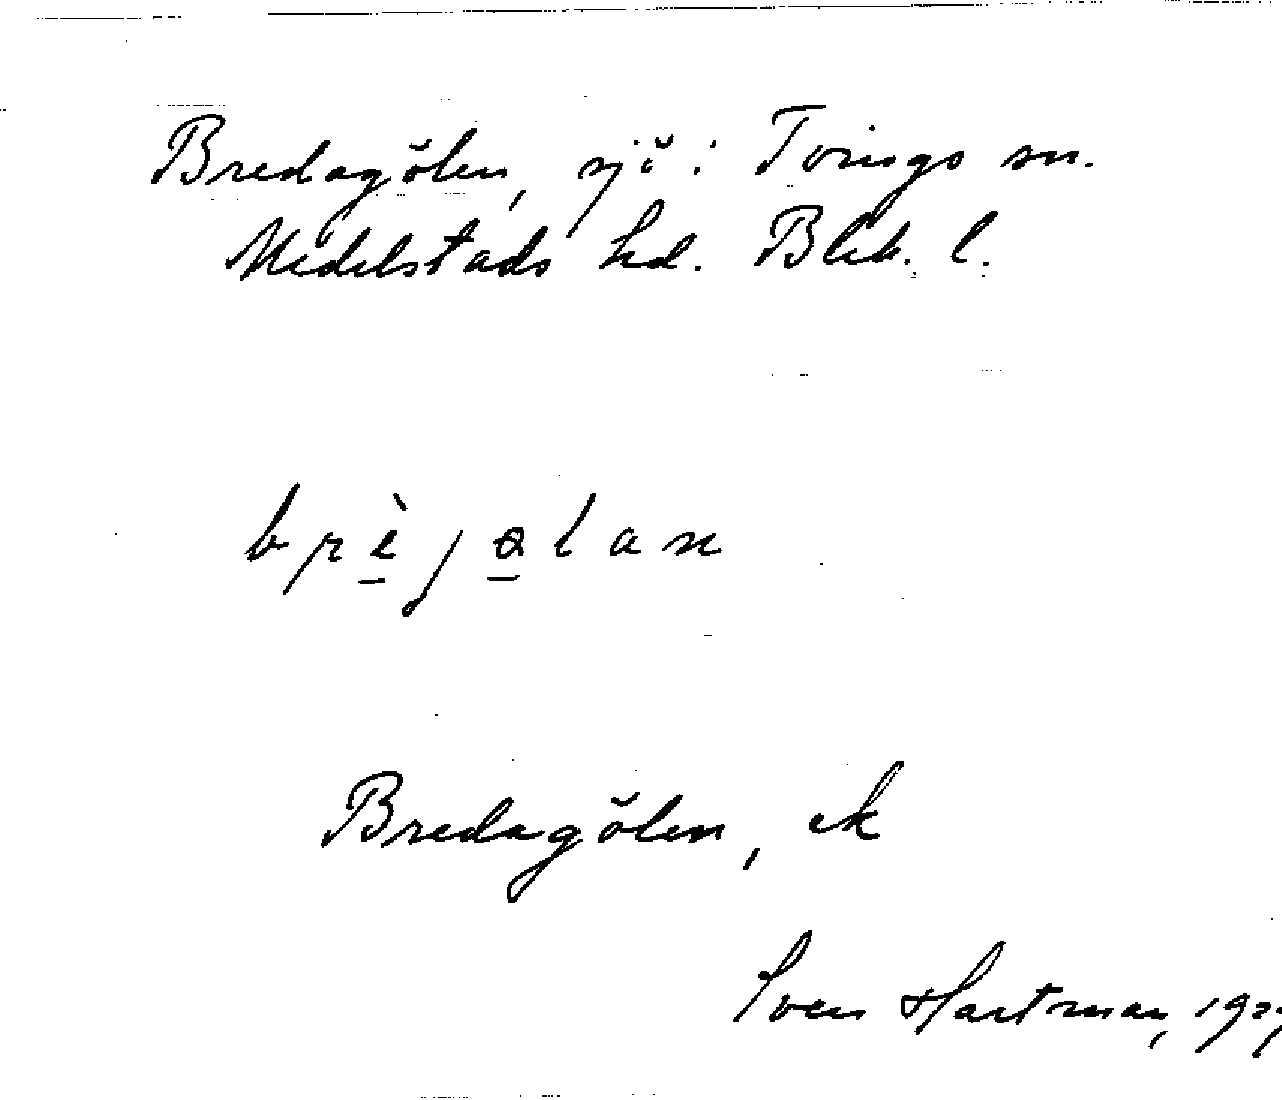 Bredagölen, sjö i Tvings sn.
Medelstads hd. Blek. l.
brèjølan
Bredagölen, ek
Sven Hartman, 19